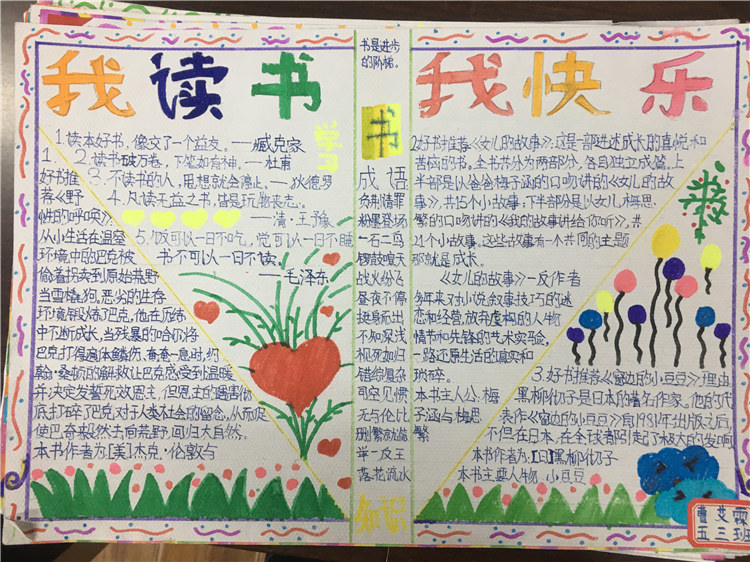 我读书
我快乐
1.读本好书，像交了一个益友。——臧克家
2.读书破万卷，下笔如有神。——杜甫
3.不读书的人，思想就会停止。——狄德罗
4.凡读无益之书，皆是玩物丧志。
——清·王予豫
5.饭可以一日不吃，觉可以一日不睡
书不可以一日不读。
——毛泽东
学习
1.
好书推
荐《野
性的呼唤》
从小生活在温室
环境中的巴克被
偷着拐卖到原始荒野
当雪橇狗，恶劣的生存
环境锻炼了巴克，他在历练
中不断成长，当残暴的哈尔将
巴克打得遍体鳞伤、奄奄一息时，约
翰·桑顿的解救让巴克感受到温暖
并决定发誓死效恩主，但恩主的遇害彻
底打碎了巴克对于人类社会的留念，从而促
使巴克毅然走向荒野，回归大自然。
本书作者为[美]杰克·伦敦与
书是进步
的阶梯。
书
成语
负荆请罪
粉墨登场
一石二鸟
锣鼓喧天
战火纷飞
昼夜不停
挺身而出
不知深浅
视死如归
错综复杂
司空见惯
无与伦比
举一反三
落花流水
知识
2.好书推荐《女儿的故事》这是一部讲述成长的喜悦和
苦恼的书。全书书分为两部分，各自独立成篇。上
半部是以爸爸梅子涵的口吻讲的《女儿的故
事》，共15个小故事，下半部份是以女儿梅思
繁的口吻讲的《我的故事讲给你听》，共
21个小故事。这些故事有一个共同的主题
那就是成长。
《女儿的故事》一反作者
多年来对小说叙事技巧的迷
恋和经营，放弃虚构的人物
情节和先锋的艺术实验，
一路还原生活的真实和
琐碎。
本书主人公：梅
子涵与梅思
繁
3.好书推荐《窗边的小豆豆》理由
黑柳彻子是日本的著名作家。他的代
表作《窗边的小豆豆》自1981年出版之后，
不但在日本，在全球都引起了极大的反响
本书作者为：[日]黑柳彻子
本书主要人物：小豆豆
曹艾霞
五三班